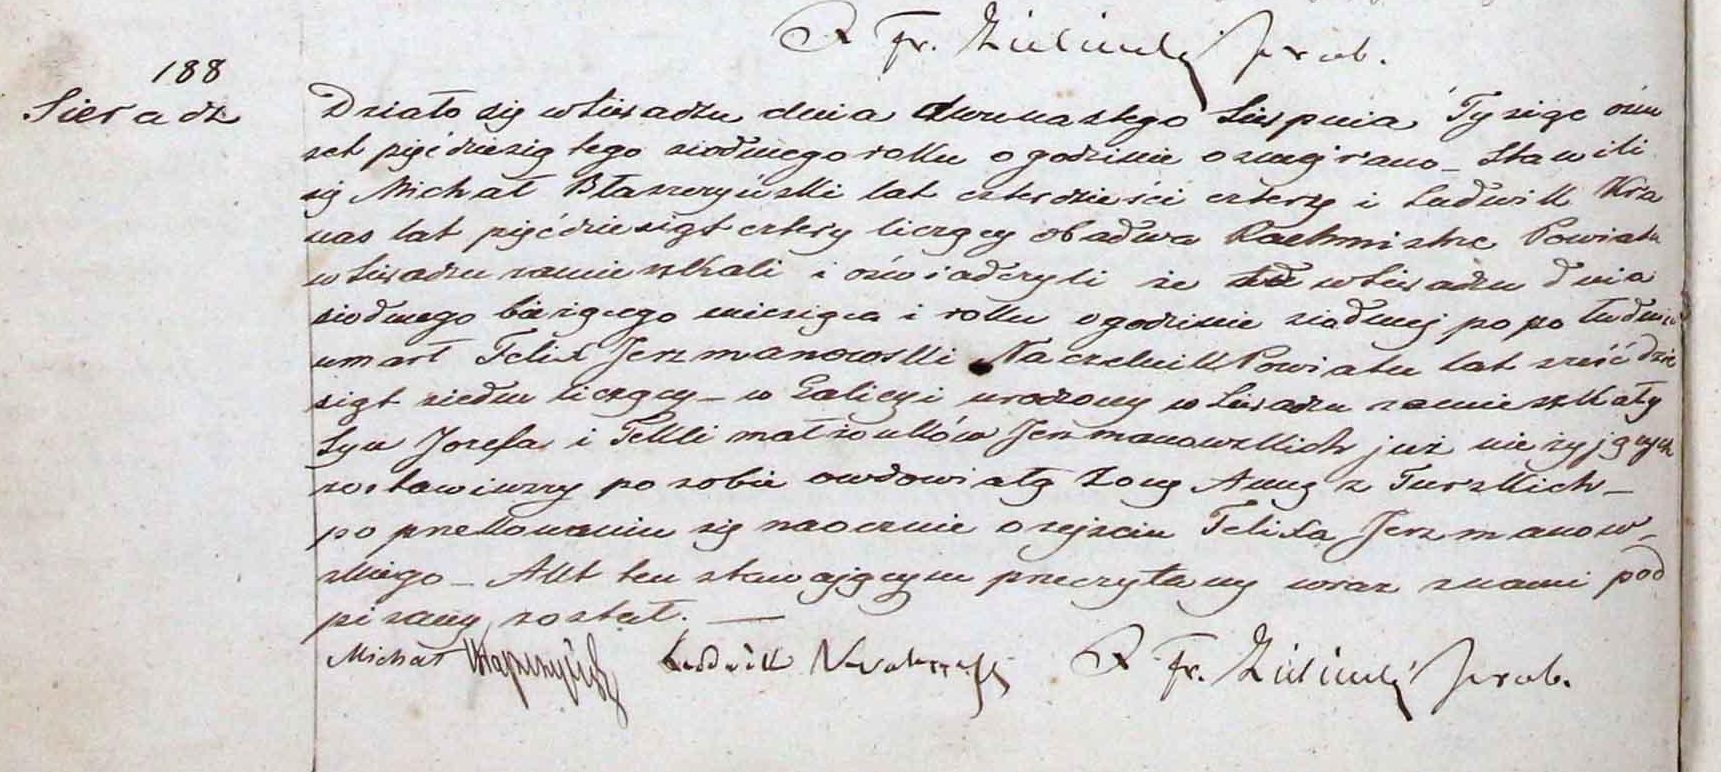 X Fr. Zieliński prob.
188
Sieradz
Działo się w Sieradzu dnia dwunastego Sierpnia Tysiąc ośm
set pięćdziesiątego siodmego roku o godzinie osmej rano _ Stawili
się Michał Błaszczyński lat czterdzieści cztery i Ludwik
lat pięćdziesiąt cztery liczący obadwa Rachmistrze Powiatu
w Sieradzu zamieszkali i oświadczyli że w Sieradzu dnia
siodmego bieżącego miesiąca i roku o godzinie siodmej po południu
umarł Felix Jerzmanowski Naczelnik Powiatu lat sześćdzie
siąt siedm liczący _ w Galicyi urodzony w Sieradzu zamieszkały
Syn Jozefa i Tekli małżonków Jerzmanowskich już nie żyjących
zostawiwszy po sobie owdowiałą Żonę Annę z Turskich _
po przekonaniu się naocznie o zejściu Felixa Jerzmanow_
skiego _ Akt ten stawającym przeczytany wraz z nami pod
pisany został. _
Michał Błaszczyński Ludwik X Fr. Zieliński prob.